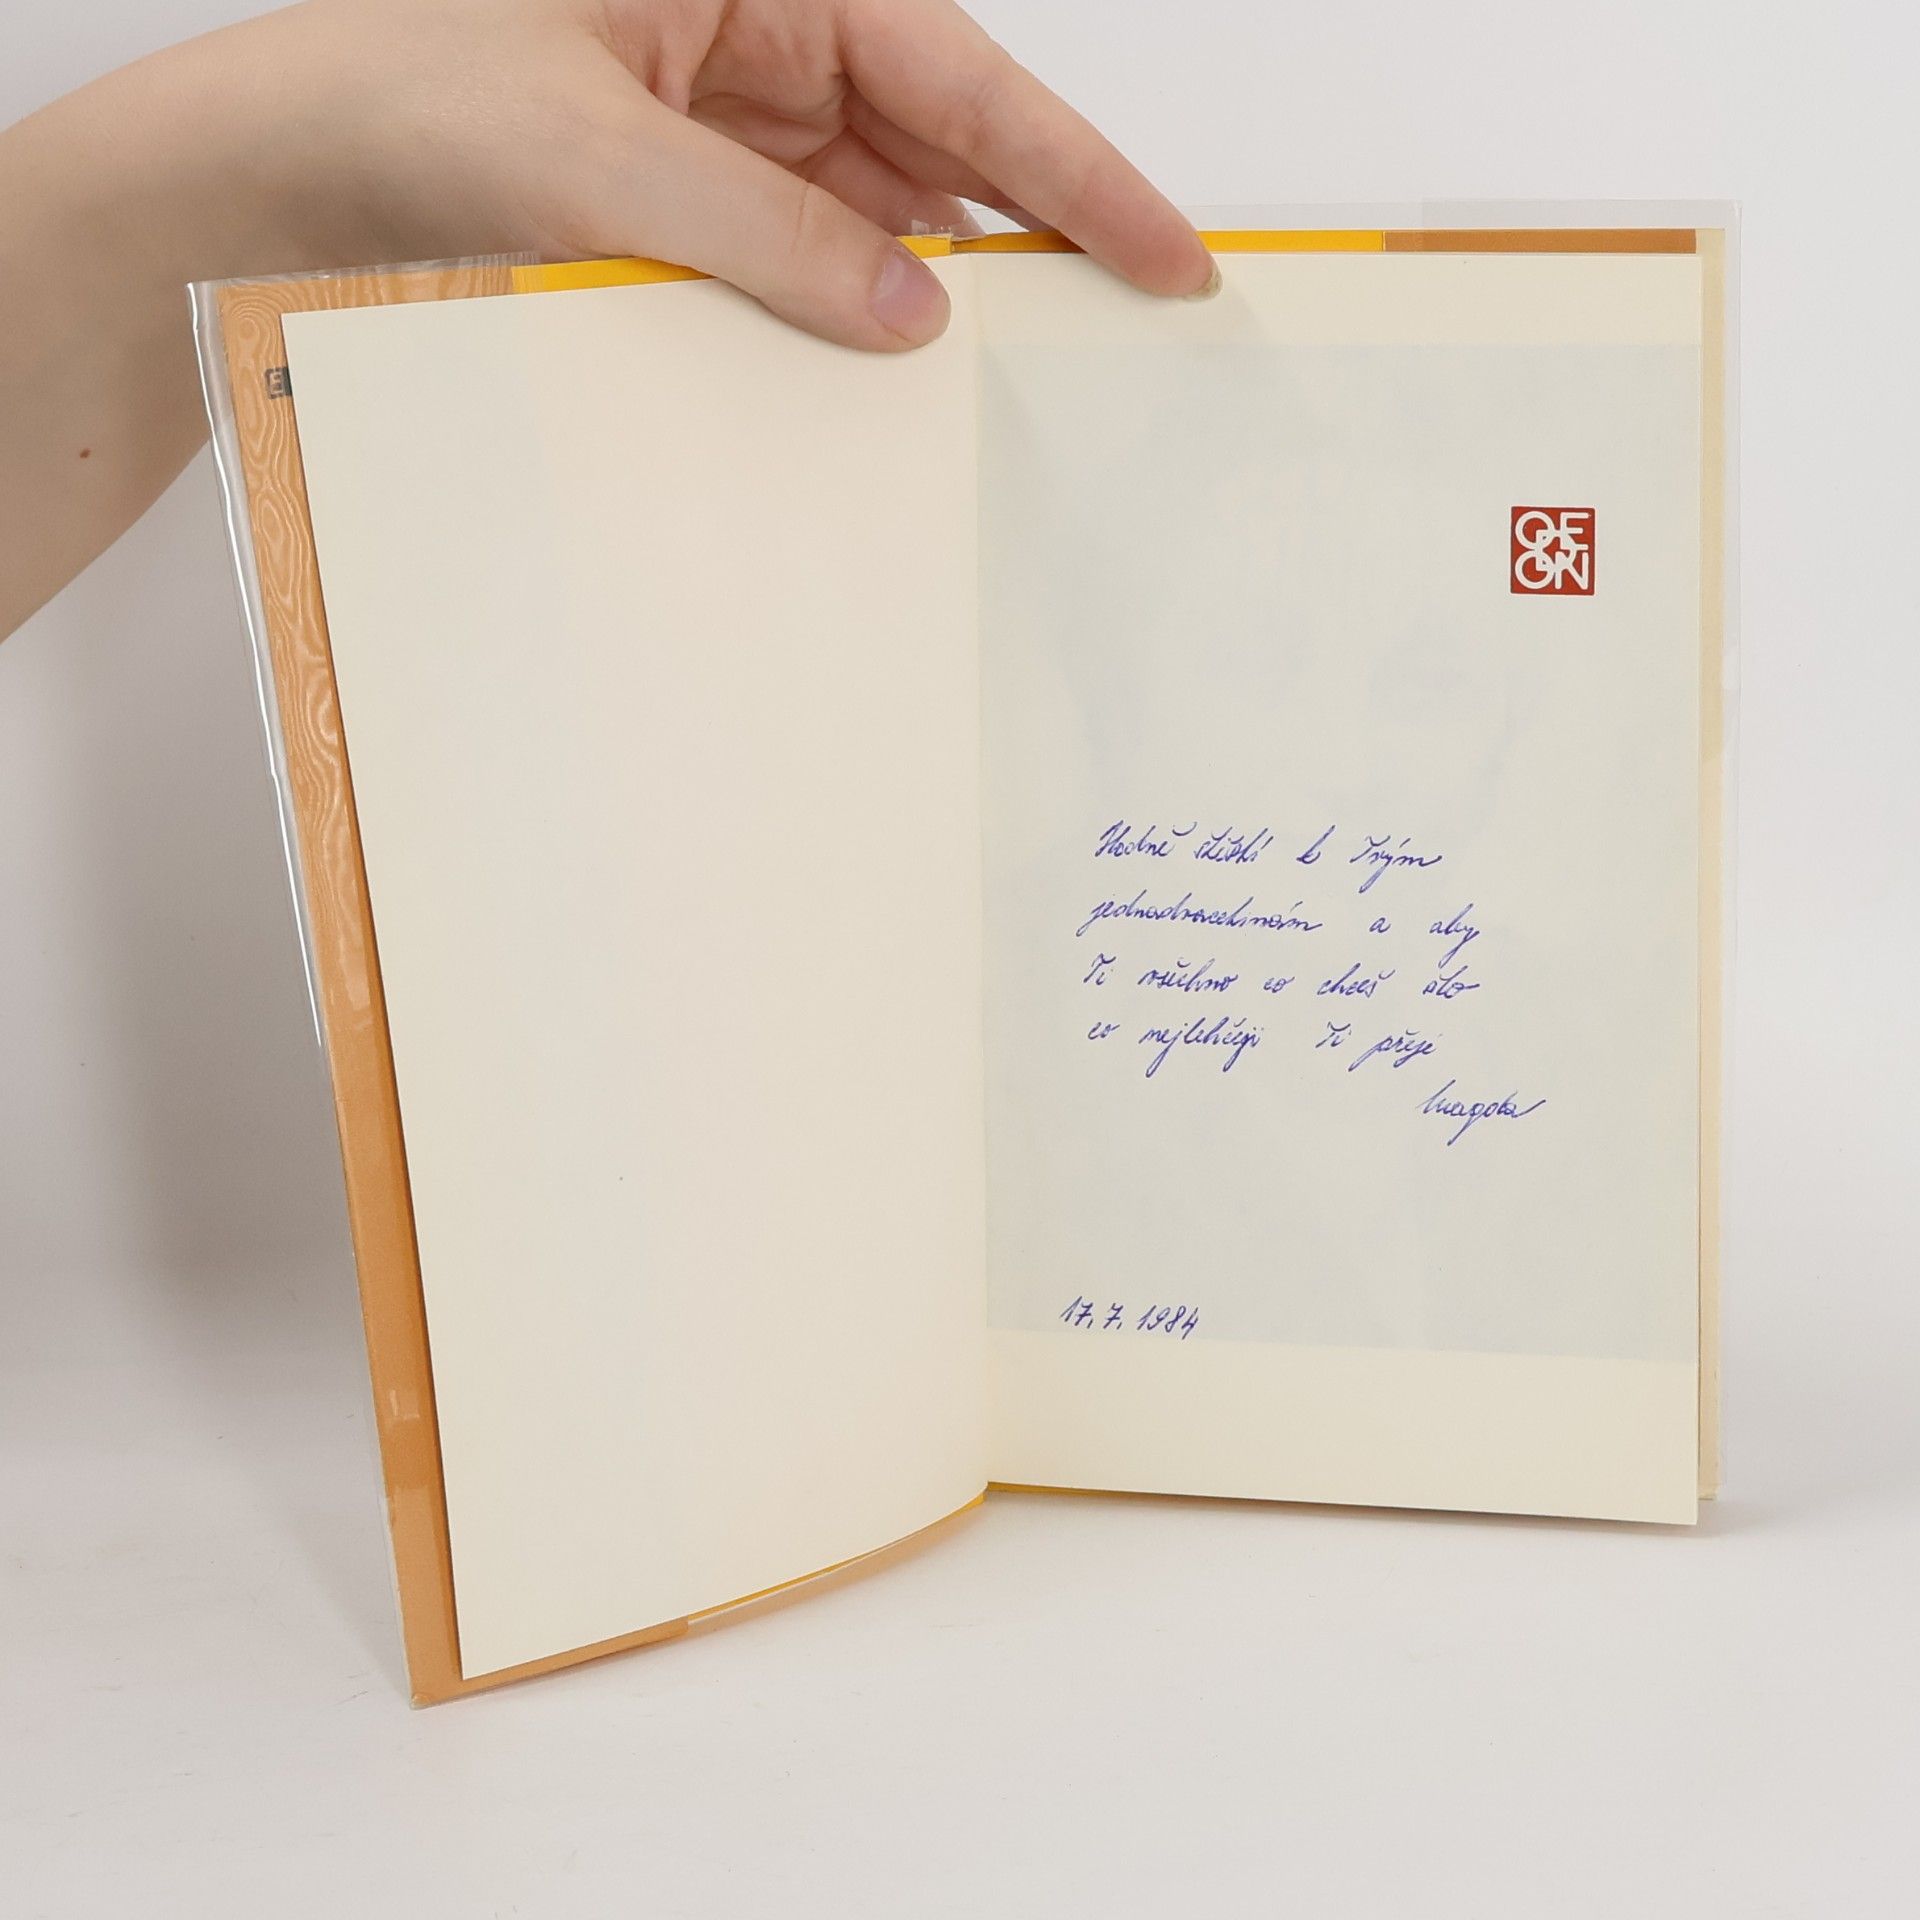 ODEON
Hodně štěstí k Tvým
jednadvacetinám a aby
Ti všechno co chceš šlo
co nejlehčeji Ti přeje
Magda
17. 7. 1984